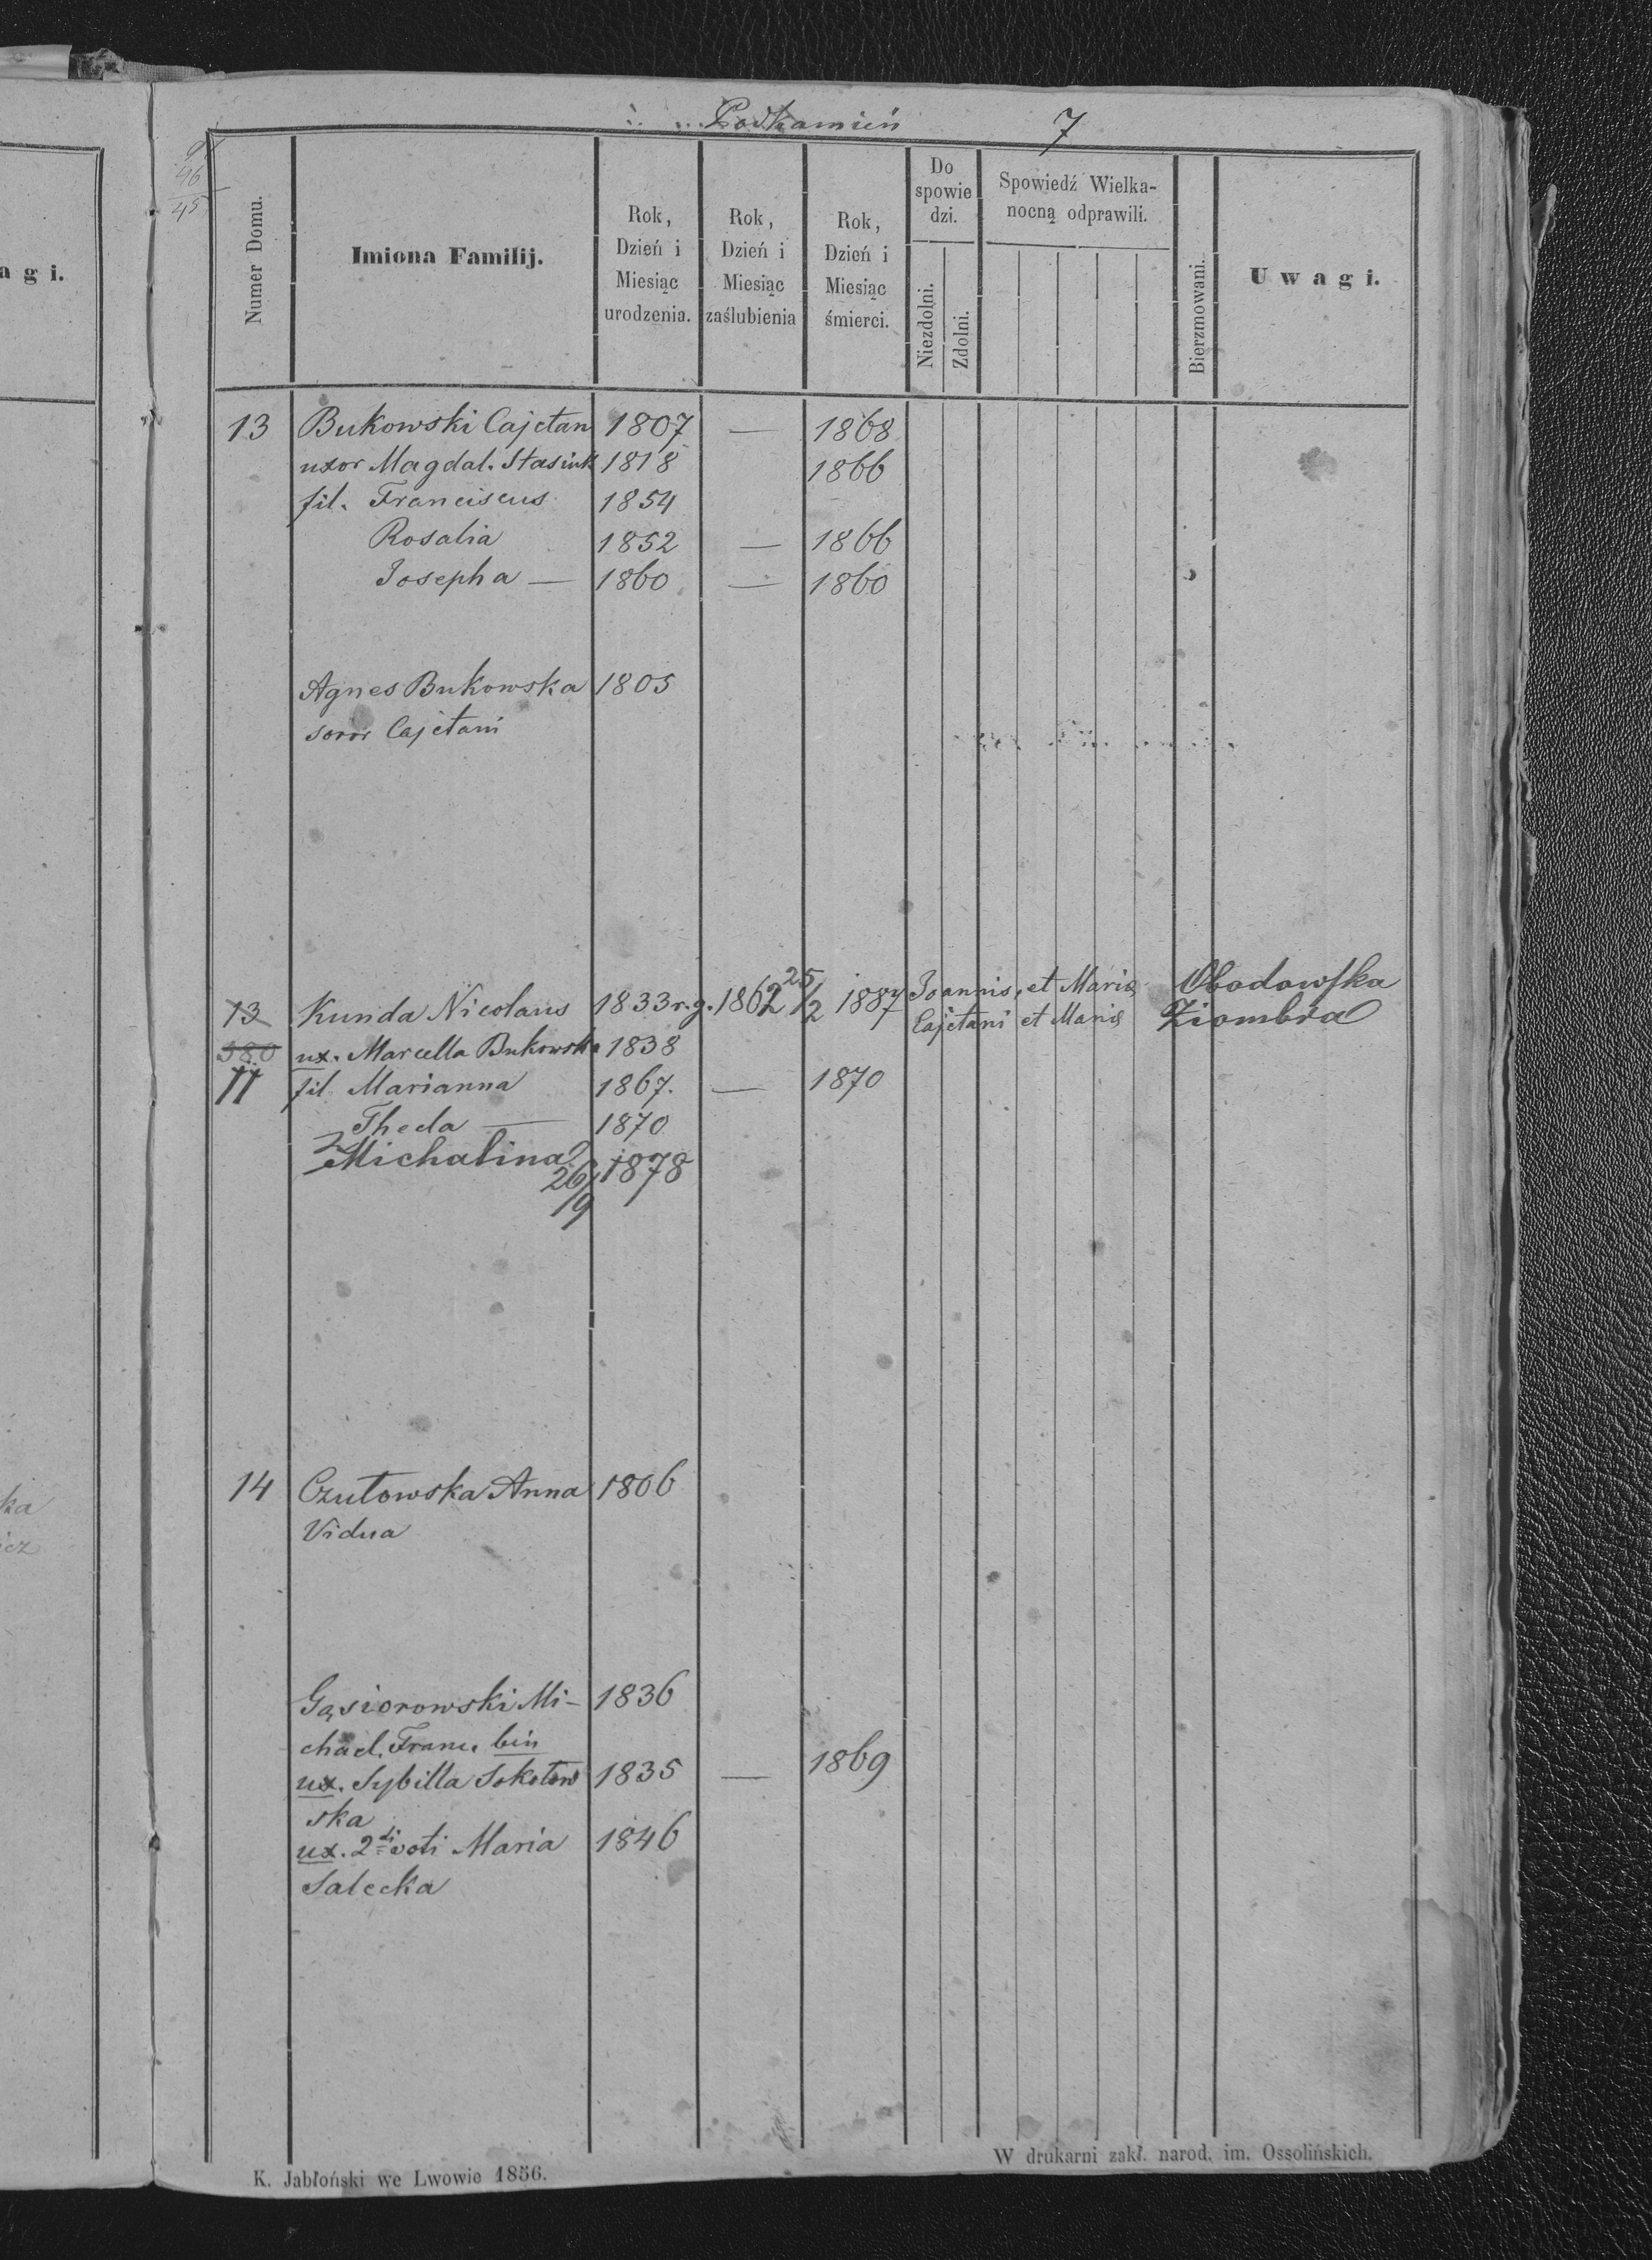 Podkamień 7
91
46
45
a g i.
Numer Domu.
Imiona Familij.
Rok, Dzień i Miesiąc urodzenia.
Rok, Dzień i Miesiąc zaślubienia
Rok, Dzień i Miesiąc śmierci.
Do spowie dzi.
Niezdolni.
Zdolni.
Spowiedź Wielka-
nocną odprawili.
Bierzmowani.
U w a g i.
13 Bukowski Cajetan 1807 — 1868
uxor Magdal. Stasiuk 1818 1866
fil. Franciscus 1854
Rosalia 1852 — 1866
Josepha — 1860 — 1860
Agnes Bukowska 1805
soror Cajetani
13 Kunda Nicolaus 1833 r.g. 1862 25/2 1887 Joannis et Maria Obodowska
380 ux. Marcella Bukowska 1838 Cajetani et Maria Ziombra
11 fil. Marianna 1867. — 1870
Thecla — 1870
Michalina 26/9 1878
14 Czutowska Anna 1806
Vidua
ka
icz
Gąsiorowski Mi- 1836
chael, Franc. bin
ux. Sybilla Sokołow 1835 — 1869
ska
ux. 2di voti Maria 1846
Salecka
K. Jabłoński we Lwowie 1856.
W drukarni zakł. narod. im. Ossolińskich.